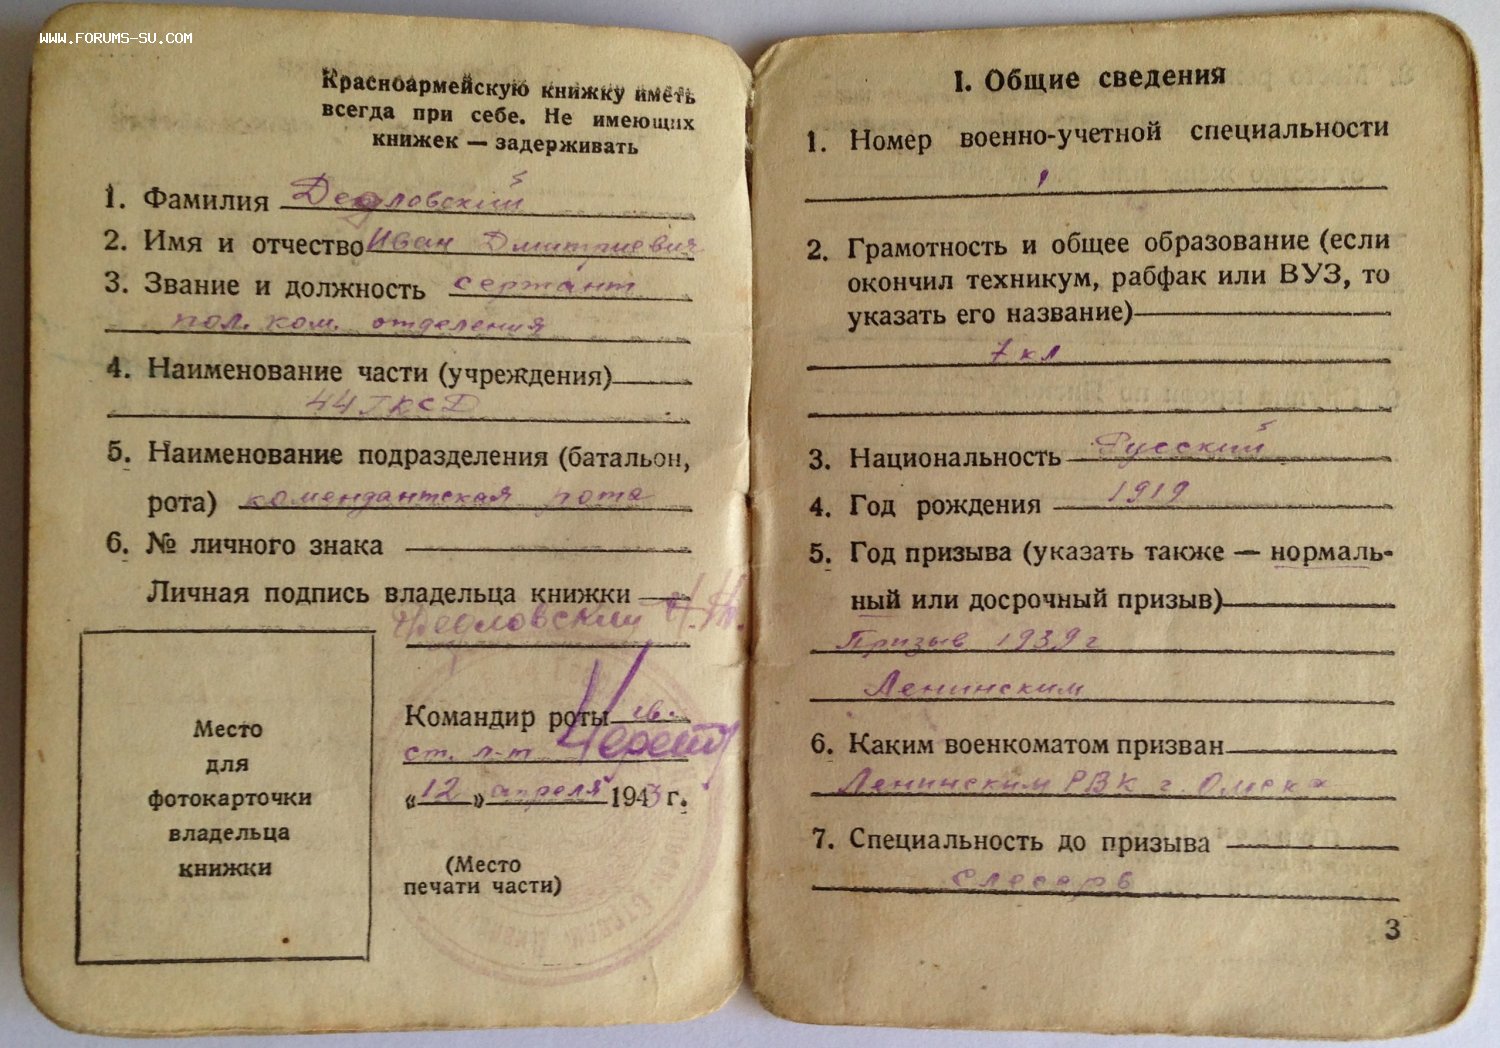 WWW.FORUMS-SU.COM
Красноармейскую книжку иметь
всегда при себе. Не имеющих
книжек — задерживать
1. Фамилия Дедловский
2. Имя и отчество Иван Дмитриевич
3. Звание и должность сержант
пол. ком. отделения
4. Наименование части (учреждения)
44 ГКСД
5. Наименование подразделения (батальон,
рота) комендантская рота
6. № личного знака
Личная подпись владельца книжки
Дедловский
Место
для
фотокарточки
владельца
книжки
Командир роты гв.
ст. л-т
«12» апреля 1943 г.
(Место
печати части)
I. Общие сведения
1. Номер военно-учетной специальности
1
2. Грамотность и общее образование (если
окончил техникум, рабфак или ВУЗ, то
указать его название)
7 кл
3. Национальность Русский
4. Год рождения 1919
5. Год призыва (указать также — нормаль-
ный или досрочный призыв)
Призыв 1939 г
Ленинским
6. Каким военкоматом призван
Ленинским РВК г. Омска
7. Специальность до призыва
слесарь
3